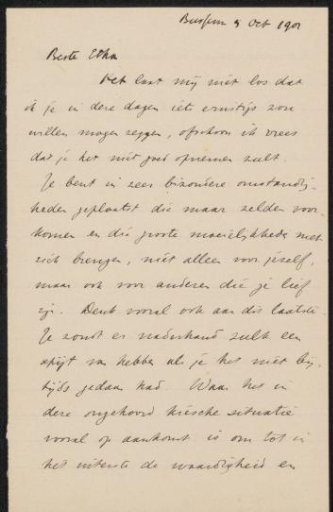 Bussum 5 Oct 1901
Beste Edha
Het laat mij niet los dat
ik je in deze dagen iets ernstigs zou
willen mogen zeggen, ofschoon ik vrees
dat je het niet goed opnemen zult.
Je bent in zeer bizondere omstandig-
heden geplaatst die maar zelden voor-
komen en die groote moeielijkheden met
zich brengen, niet alleen voor jezelf,
maar ook voor anderen die je lief
zijn. Denk vooral ook aan dis laatste.
Je zoudt er naderhand zulk een
spijt van hebben als je het niet bij-
tijds gedaan had. Waar het in
deze ongehoord kiesche situatie
vooral op aankomt is om tot in
het uiterste de waardigheid en